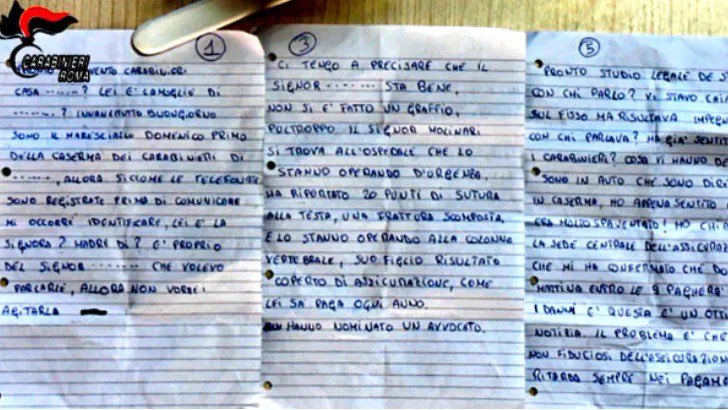 CARABINIERI
ROMA
1
PRONTO INTERVENTO CARABINIERI
CASA ........? LEI E' LA MOGLIE DI
........? INNANZITUTTO BUONGIORNO
SONO IL MARESCIALLO DOMENICO PRIMO
DELLA CASERMA DEI CARABINIERI DI
........, ALLORA SICCOME LE TELEFONATE
SONO REGISTRATE PRIMA DI COMUNICARE
MI OCCORRE IDENTIFICARE, LEI E' LA
SIGNORA? MADRE DI? E' PROPRIO
DEL SIGNOR ........ CHE VOLEVO
PARLARLE, ALLORA NON VORREI
AGITARLA
3
CI TENGO A PRECISARE CHE IL
SIGNOR ........ STA BENE,
NON SI E' FATTO UN GRAFFIO,
PULTROPPO IL SIGNOR MOLINARI
SI TROVA ALL'OSPEDALE CHE LO
STANNO OPERANDO D'URGENZA,
HA RIPORTATO 20 PUNTI DI SUTURA
ALLA TESTA, UNA FRATTURA SCOMPOSTA,
E LO STANNO OPERANDO ALLA COLONNA
VERTEBRALE, SUO FIGLIO RISULTATO
COPERTO DI ASSICURAZIONE, COME
LEI SA PAGA OGNI ANNO.
HANNO NOMINATO UN AVVOCATO.
5
PRONTO STUDIO LEGALE DE S
CON CHI PARLO? VI STAVO CA
SUL FISSO MA RISULTAVA IMPEGN
CON CHI PARLAVA? HA GIA' SENTIT
I CARABINIERI? COSA VI HANNO D
SONO IN AUTO CHE SONO DIR
IN CASERMA, HO APPENA SENTITO
ERA MOLTO SPAVENTATO! HO CHI
LA SEDE CENTRALE DELL'ASSICURA
CHE MI HA CONFERMATO CHE DO
MATTINA ENTRO LE 9 PAGHERA'
I DANNI E' QUESTA E' UN OTTI
NOTIZIA. IL PROBLEMA E' CHE
NON FIDUCIOSI DELL'ASSICURAZION
RITARDA SEMPRE NEI PAGAM